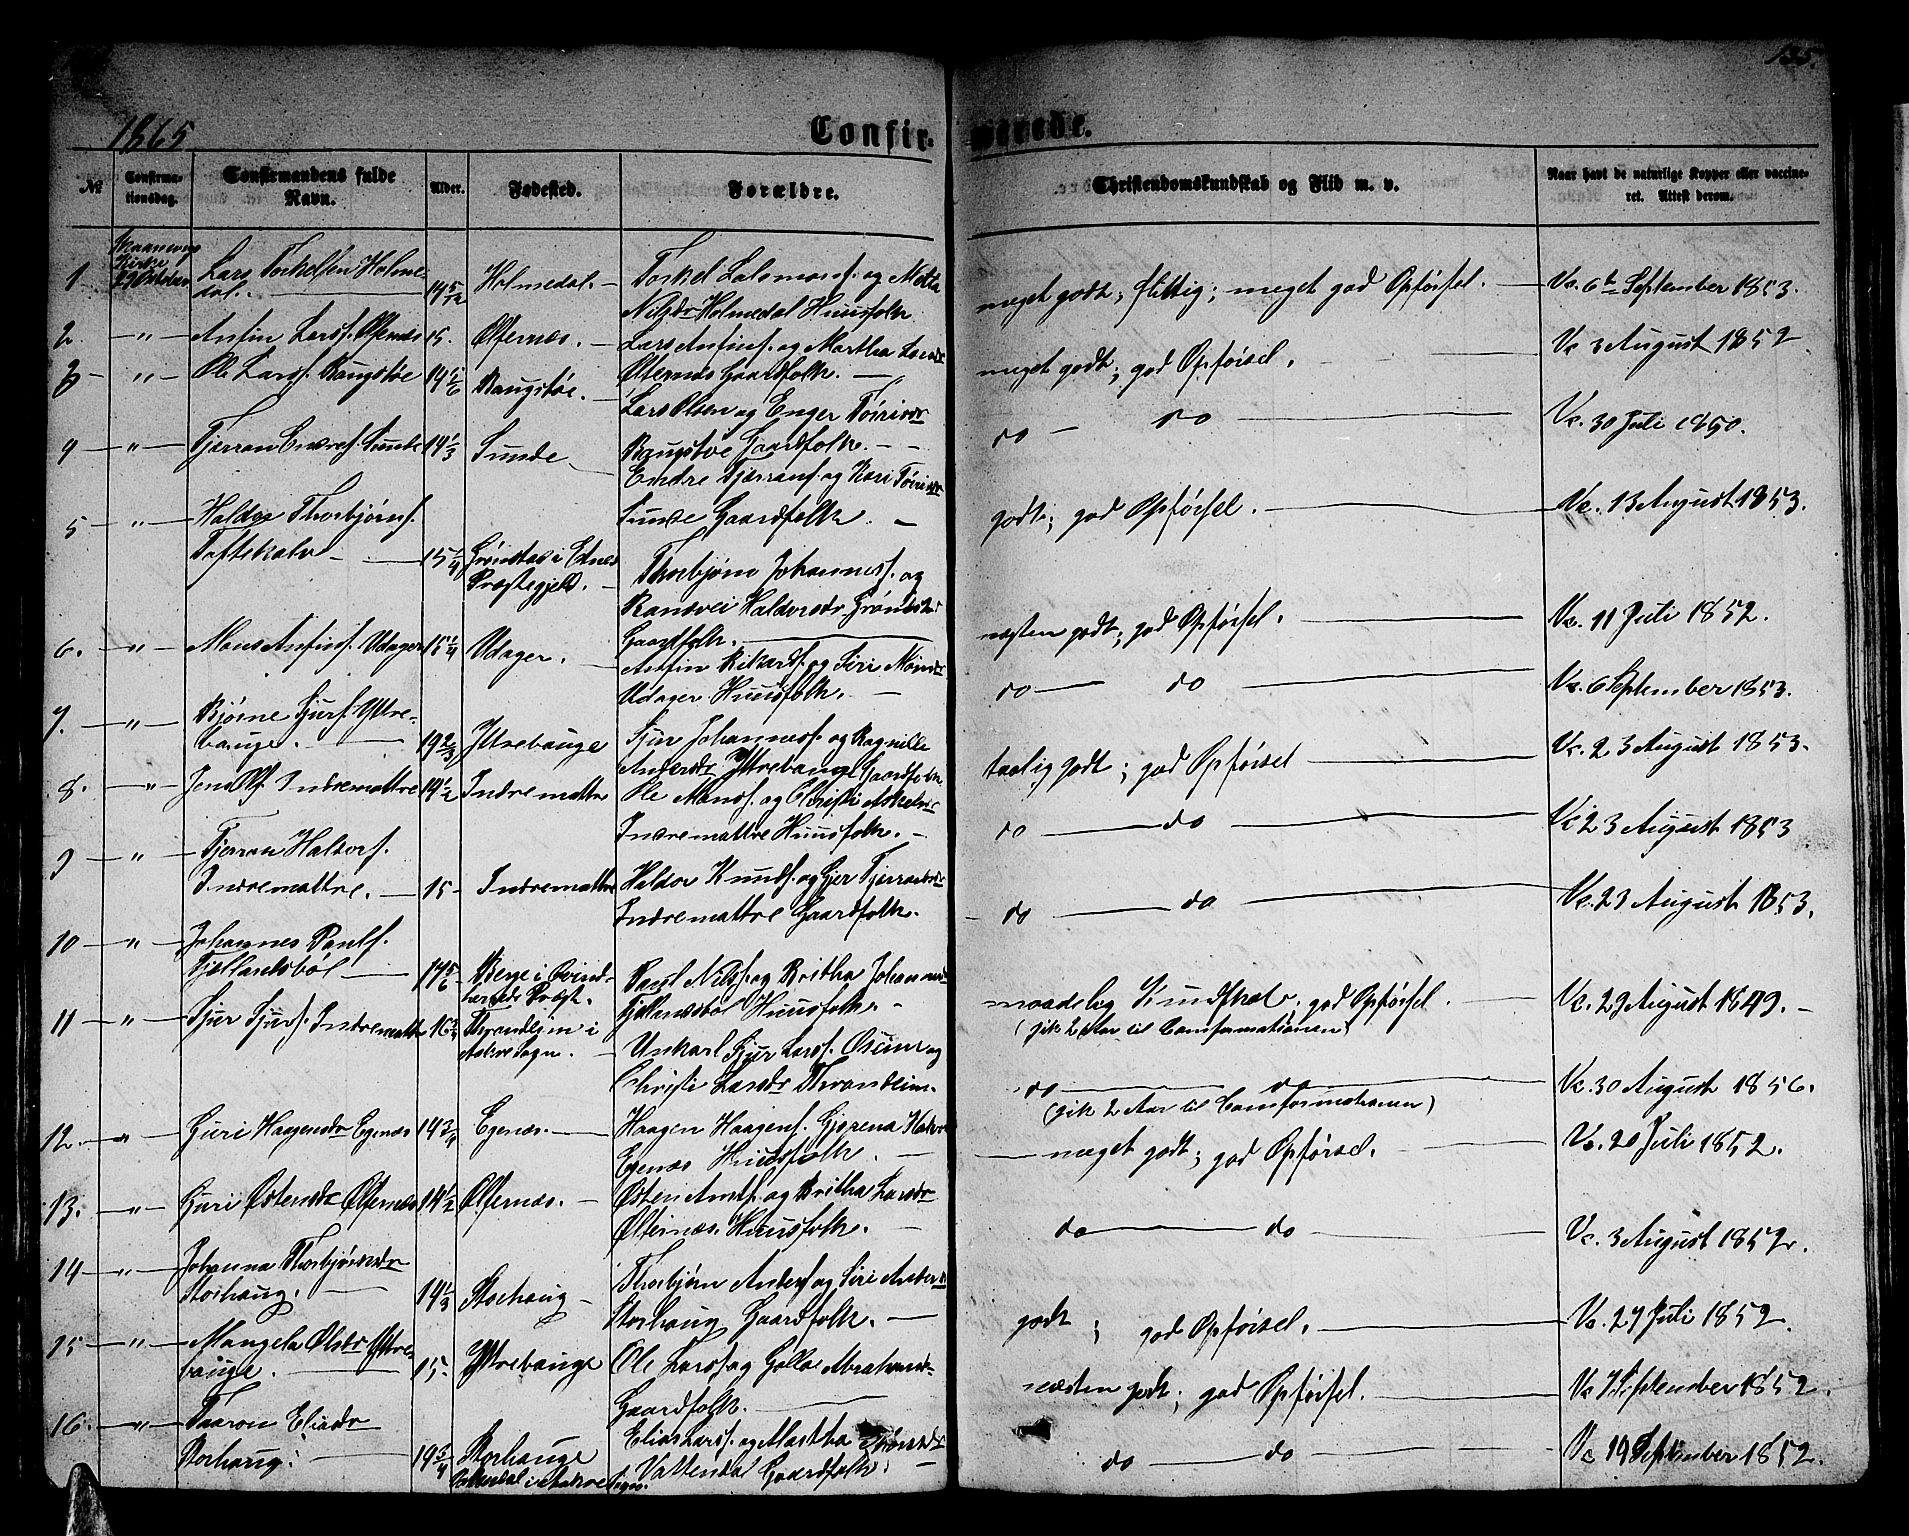 135.
1865
Confir-
merede.
№
Confirma-
tionsdag.
Confirmandens fulde
Navn.
Alder.
Fødested.
Forældre.
Christendomskundskab og Flid m. v.
Naar havt de naturlige Kopper eller vaccine-
ret. Attest derom.
1 Skaanevig Kirke 29 Oktober Lars Torkelsen Holme-
dal. 14 5/12 Holmedal. Torkel Salomons. og Metta
Nilsdr Holmedal Huusfolk
meget godt; flittig; meget god Opførsel. Vc. 6te September 1853.
2. " Anfin Larss. Ølfernæs 15. Ølfernæs. Lars Anfins. og Martha Larsdr
Ølfernæs Gaardfolk.
meget godt; god Opførsel. Vc 3 August 1852
3 " Ole Larss. Raugstøe 14 5/6 Raugstøe. Lars Olsen og Enger Tøirisdr
Raugstøe Gaardfolk.
do do Vc. 30 Juli 1850.
4 " Tjerran Endres. Sunde 14 1/3 Sunde Endre Tjerrans. og Kari Tøirisdr
Sunde Gaardfolk.
godt; god Opførsel. Vc. 13 August 1853.
5 " Haldor Thorbjørns.
Toftekalv 15 1/4 Grønstad i Etnes
Præstegjeld. Thorbjørn Johanness. og
Ranevei Haldorsdr Grønstad
Gaardfolk.
næsten godt; god Opførsel. Vc. 11 Juli 1852.
6. " Mons Anfins. Udager 15 1/4 Udager. Anfin Rikards. og Siri Mons dr
Udager Huusfolk.
do do Vc. 6 September 1853.
7. " Bjørne Sjurs. Yttre-
bauge. 19 2/3 Yttrebauge Sjur Johanness. og Ragnille
Andersdr Yttrebauge Gaardfolk.
taalig godt; god Opførsel Vc. 23 August 1853.
8. " Jens Ols. Indremattre 14 1/2 Indremattre Ole Monss. og Christi Askelsdr
Indremattre Huusfolk.
do do Vc 23 August 1853
9 " Tjerran Haldors.
Indremattre. 15 Indremattre Haldor Knuds. og Gjer Tjerransdr
Indremattre Gaardfolk.
do do Vc. 23 August 1853.
10 " Johannes Pauls.
Fjellandsbøl 14 5/6 Berge i Qvind-
herreds Præst. Paul Nils. og Britha Johannesdr
Fjellandsbøl Huusfolk.
maadelig Kundskab; god Opførsel.
(gik 2 Aar til Comfirmationen) Vc. 29 August 1849.
11 " Sjur Sjurs. Indremattre 16 3/4 Thrandeim i
Aakre Sogn. Unkarl Sjur Larss. Oscim og
Christi Larsdr Thrandeim.
do do
(gik 2 Aar til Comfirmationen) Vc. 30 August 1856.
12. " Guri Haagensdr Egenæs 14 3/4 Egenæs. Haagen Haagens. Gjerena
Egenæs Huusfolk.
meget godt; god Opførsel. Vc. 20 Juli 1852.
13. " Guri Østensdr Ølfernæs 14 1/2 Ølfernæs. Østen Amts. og Britha Larsdr
Ølfernæs. Huusfolk.
do do Vc. 3 August 1852.
14 " Johanna Thorbjørnsdr
Storhaug. 14 1/3 Storhaug Thorbjørn Anders. og Siri Andersdr
Storhaug Gaardfolk.
godt; god Opførsel. Vc. 27 Juli 1852
15 " Mangela Olsdr Yttre-
bauge. 15 Yttrebauge Ole Larss. og Golla Abrahamsdr
Gaardfolk.
næsten godt; god Opførsel. Vc 7 September 1852.
16. " Taaron Eliasdr
Storhaug. 19 3/4 Storhauge
Vattendal i Aakre Sogn. Elias Larss. og Martha
Vattendal Gaardfolk.
do do Vc 19 September 1852.